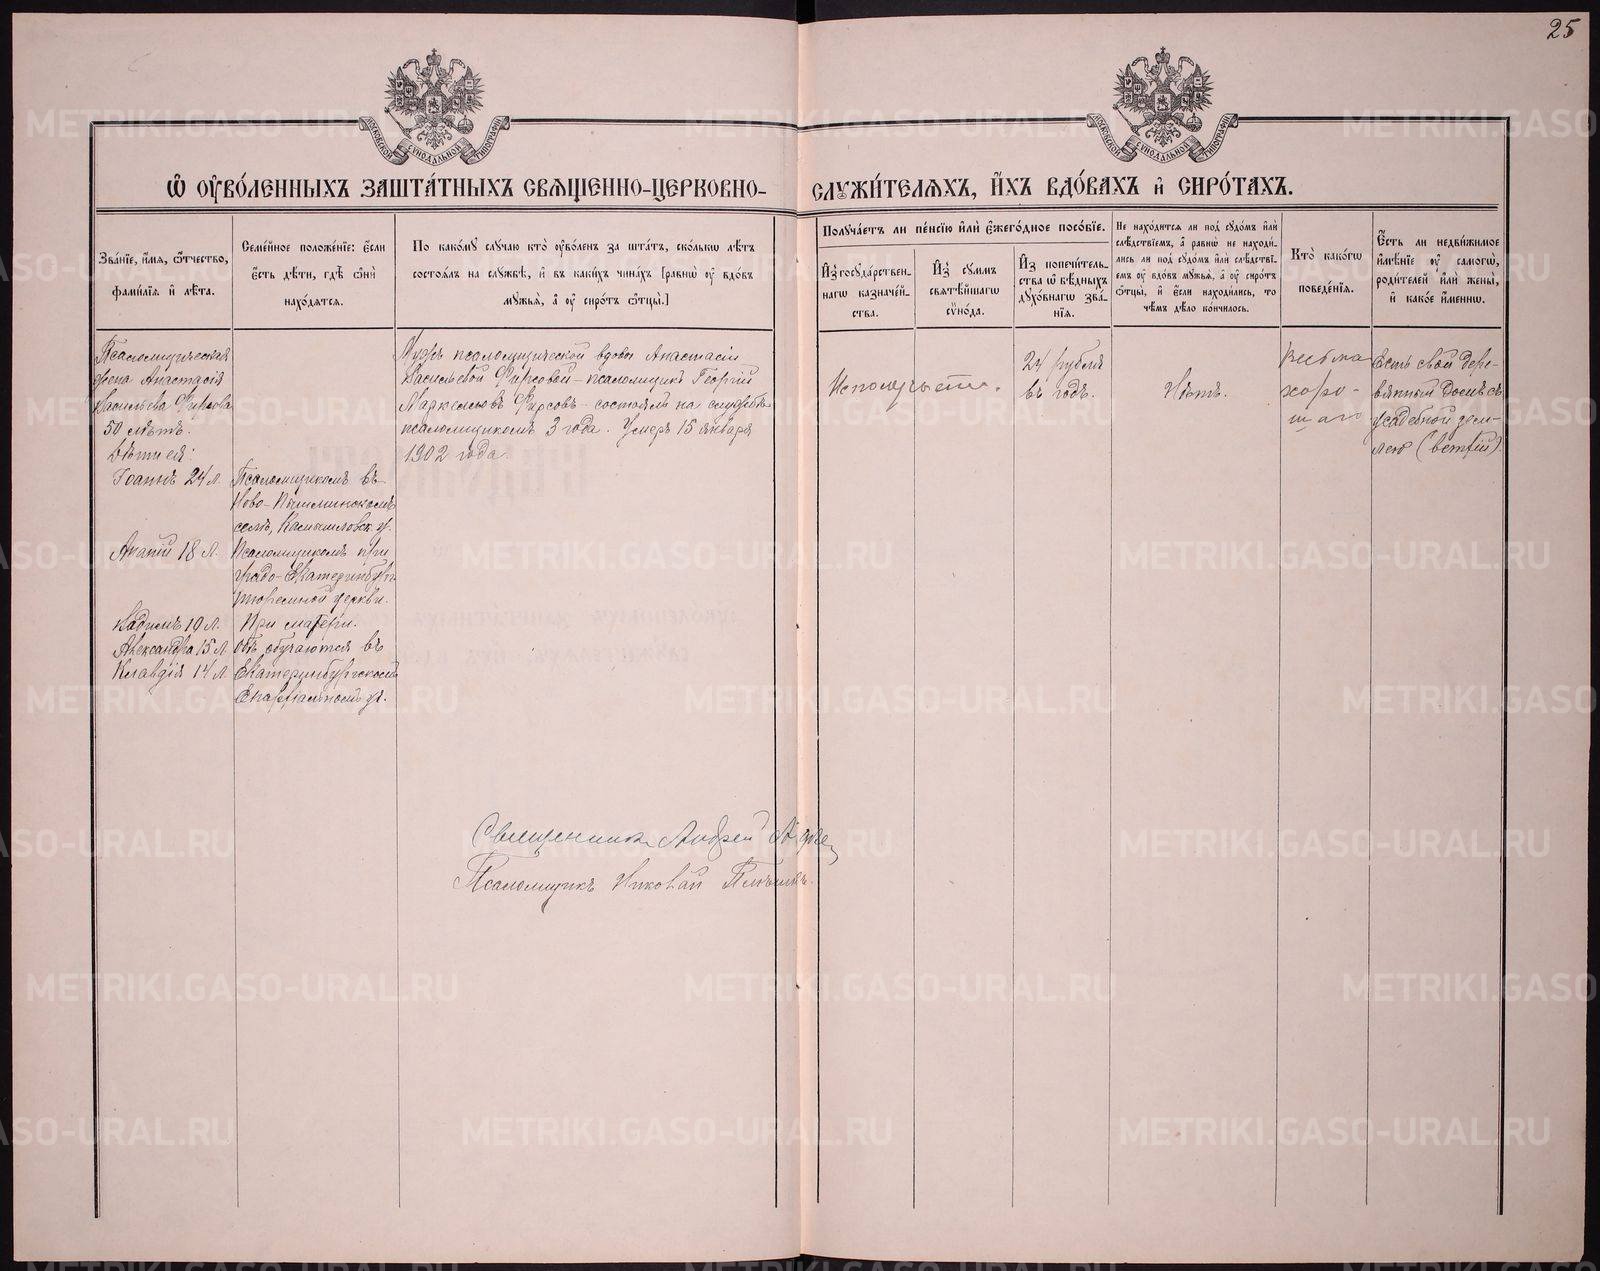 25
МОСКОВСКОЙ СѴНОДАЛЬНОЙ ТИПОГРАФІИ
МОСКОВСКОЙ СѴНОДАЛЬНОЙ ТИПОГРАФІИ
Ѡ ОУ҆ВО́ЛЕННЫХЪ ЗАШТА́ТНЫХЪ СВѦЩЕННО-ЦЕРКОВНО-
СЛУЖИ́ТЕЛѦХЪ, И҆́ХЪ ВДО́ВАХЪ и҆ СИРО́ТАХЪ.
Зва́нїе, и҆́мѧ, ѻ҆́тчество,
фами́лїѧ и҆ лѣ́та.
Семе́йное положе́нїе: є҆́сли
є҆́сть дѣ́ти, гдѣ̀ ѻ҆нѝ
нахо́дѧтсѧ.
По како́мꙋ слꙋ́чаю кто̀ оу҆во́ленъ за шта́тъ, ско́лькѡ лѣ́тъ
состоѧ́лъ на слꙋ́жбѣ, и҆ въ каки́хъ чина́хъ [ра́внѡ оу҆ вдо́въ
мꙋжьѧ̀, а҆ оу҆ сиро́тъ ѻ҆тцы̀.]
Получа́етъ ли пе́нсїю и҆лѝ є҆жего́дное посо́бїе.
И҆з̾ госꙋда́рствен-
нагѡ казначе́й-
ства.
И҆з̾ сꙋ́ммъ
свѧтѣ́йшагѡ
сѷно́да.
И҆з̾ попечи́тель-
ства ѡ҆ бѣ́дныхъ
дꙋхо́внагѡ зва́-
нїѧ.
Не нахо́дитсѧ ли под̾ сꙋдо́мъ и҆лѝ
слѣ́дствїемъ, а҆ ра́внѡ не находи́-
лись ли под̾ сꙋдо́мъ и҆лѝ слѣ́дствї-
емъ оу҆ вдо́въ мꙋжьѧ̀, а҆ оу҆ сиро́тъ
ѻ҆тцы̀, и҆ є҆́сли находи́лись, то
чѣ́мъ дѣ́ло ко́нчилось.
Кто̀ како́гѡ
поведе́нїѧ.
Є҆́сть ли недви́жимое
и҆мѣ́нїе оу҆ самогѡ̀,
роди́телей и҆лѝ жены̀,
и҆ како́е и҆́меннѡ.
Псаломщическая
жена Анастасія
Васильева Фирсова
50 лѣтъ.
Дѣти ея:
Іоаннъ 24 л.
Псаломщикомъ въ
Ново-Пышминскомъ
селѣ, Камышловск. у.
18 л.
Псаломщикомъ при
градо-Екатеринбург.
тюремной церкви.
Вадимъ 19 л.
При матери.
Александра 15 л.
Обѣ обучаются въ
Клавдія 14 л.
Екатеринбургскомъ
Епархіальномъ уч.
Мужъ псаломщической вдовы Анастасіи
Васильевой Фирсовой – псаломщикъ Георгій
Маркеловъ Фирсовъ – состоялъ на службѣ
псаломщикомъ 3 года. Умеръ 15 января
1902 года.
Не получаетъ.
24 рубля
въ годъ.
Нѣтъ.
Весьма
хоро-
шаго
Есть свой дере-
вянный домъ съ
усадебной зем-
лею (ветхій).
Священникъ Андрей
Псаломщикъ Николай
METRIKI.GASO-URAL.RU